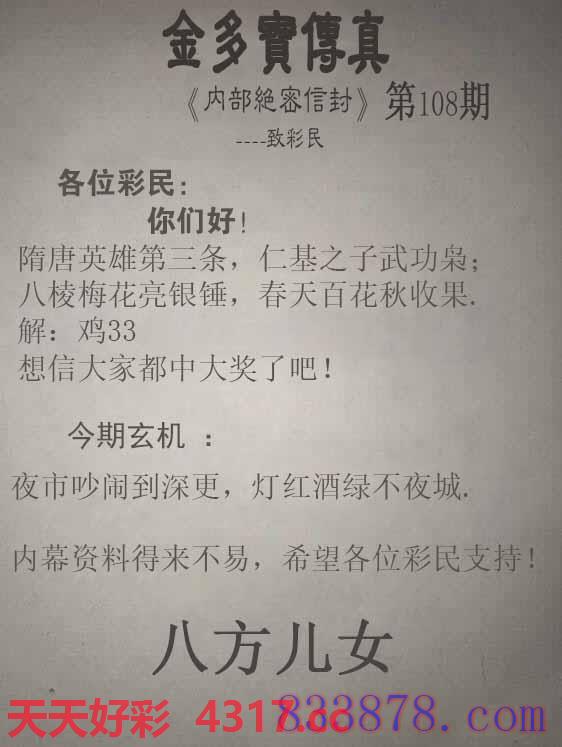 金多寶傳真
《內部絕密信封》第108期
----致彩民
各位彩民:
你们好!
隋唐英雄第三条，仁基之子武功枭;
八棱梅花亮银锤，春天百花秋收果.
解：鸡33
想信大家都中大奖了吧!
今期玄机 :
夜市吵闹到深更，灯红酒绿不夜城.
内幕资料得来不易，希望各位彩民支持!
八方儿女
天天好彩 4317.cc 833878.com